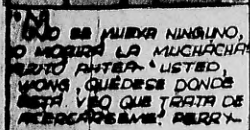 NO SE MUEVA NINGUNO,
O MORIRA LA MUCHACHA
ANTES. USTED,
WONG, QUÉDESE DONDE
ESTÁ. VEO QUE TRATA DE
ACERCÁRSEME. PERRY